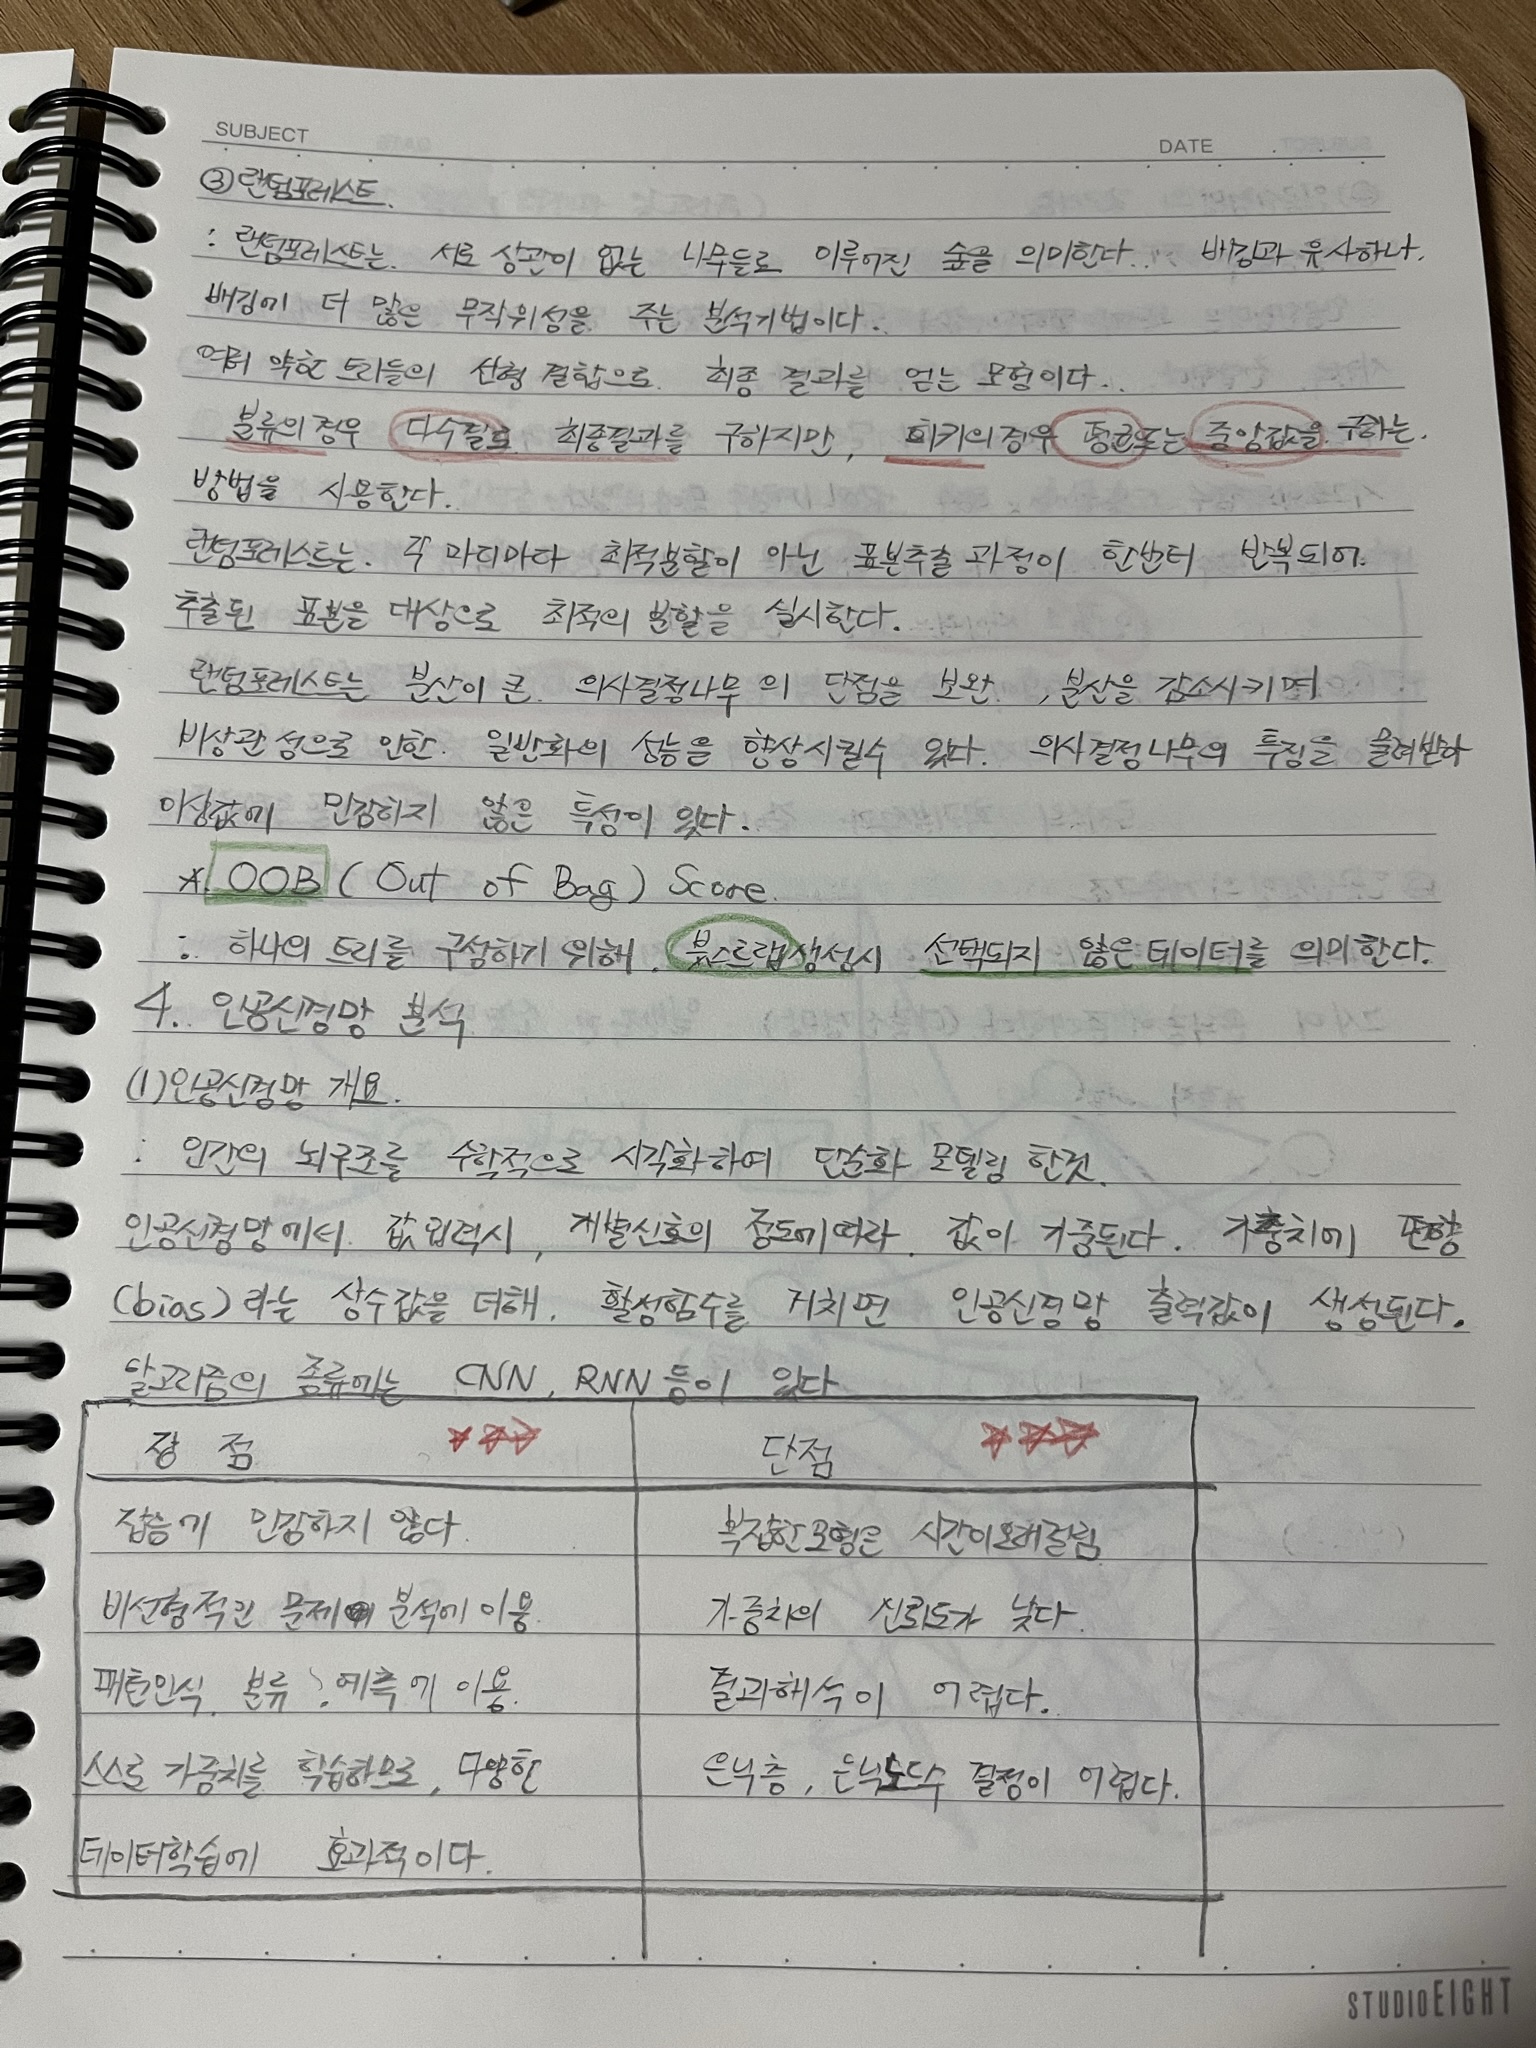 SUBJECT
DATE
③랜덤포레스트.
: 랜덤포레스트는. 서로 상관이 없는 나무들로 이루어진 숲을 의미한다.. 배깅과 유사하나.
배깅에 더 많은 무작위성을 주는 분석기법이다.
여러 약한 트리들의 선형 결합으로. 최종 결과를 얻는 모형이다..
분류의 경우 다수결로 최종결과를 구하지만, 회귀의 경우 평균또는 중앙값을 구하는.
방법을 사용한다.
랜덤포레스트는. 각 마디마다 최적분할이 아닌 표본추출 과정이 한번더 반복되어.
추출된 표본을 대상으로 최적의 분할을 실시한다.
랜덤포레스트는 분산이 큰. 의사결정나무의 단점을 보완. , 분산을 감소시키며
비상관성으로 인한. 일반화의 성능을 향상시킬수 있다. 의사결정나무의 특징을 물려받아
이상값에 민감하지 않은 특성이 있다.
*. OOB (Out of Bag) Score.
: 하나의 트리를 구성하기 위해. 붓스트랩생성시 선택되지 않은 데이터를 의미한다.
4. 인공신경망 분석
(1)인공신경망 개요.
: 인간의 뇌구조를 수학적으로 시각화하여 단순화 모델링 한것.
인공신경망에서. 값 입력시, 개별신호의 정도에따라. 값이 가중된다. 가중치에 편향
(bias)라는 상수값을 더해. 활성함수를 거치면 인공신경망 출력값이 생성된다.
알고리즘의 종류에는 CNN, RNN 등이 있다
장 점 단점
잡음에 민감하지 않다. 복잡한모형은 시간이오래걸림
비선형적인 문제 분석에 이용. 가중치의 신뢰도가 낮다.
패턴인식, 분류, 예측에 이용. 결과해석이 어렵다.
스스로 가중치를 학습하므로, 다양한 은닉층, 은닉노드수 결정이 어렵다.
데이터학습에 효과적이다.
STUDIOEIGHT